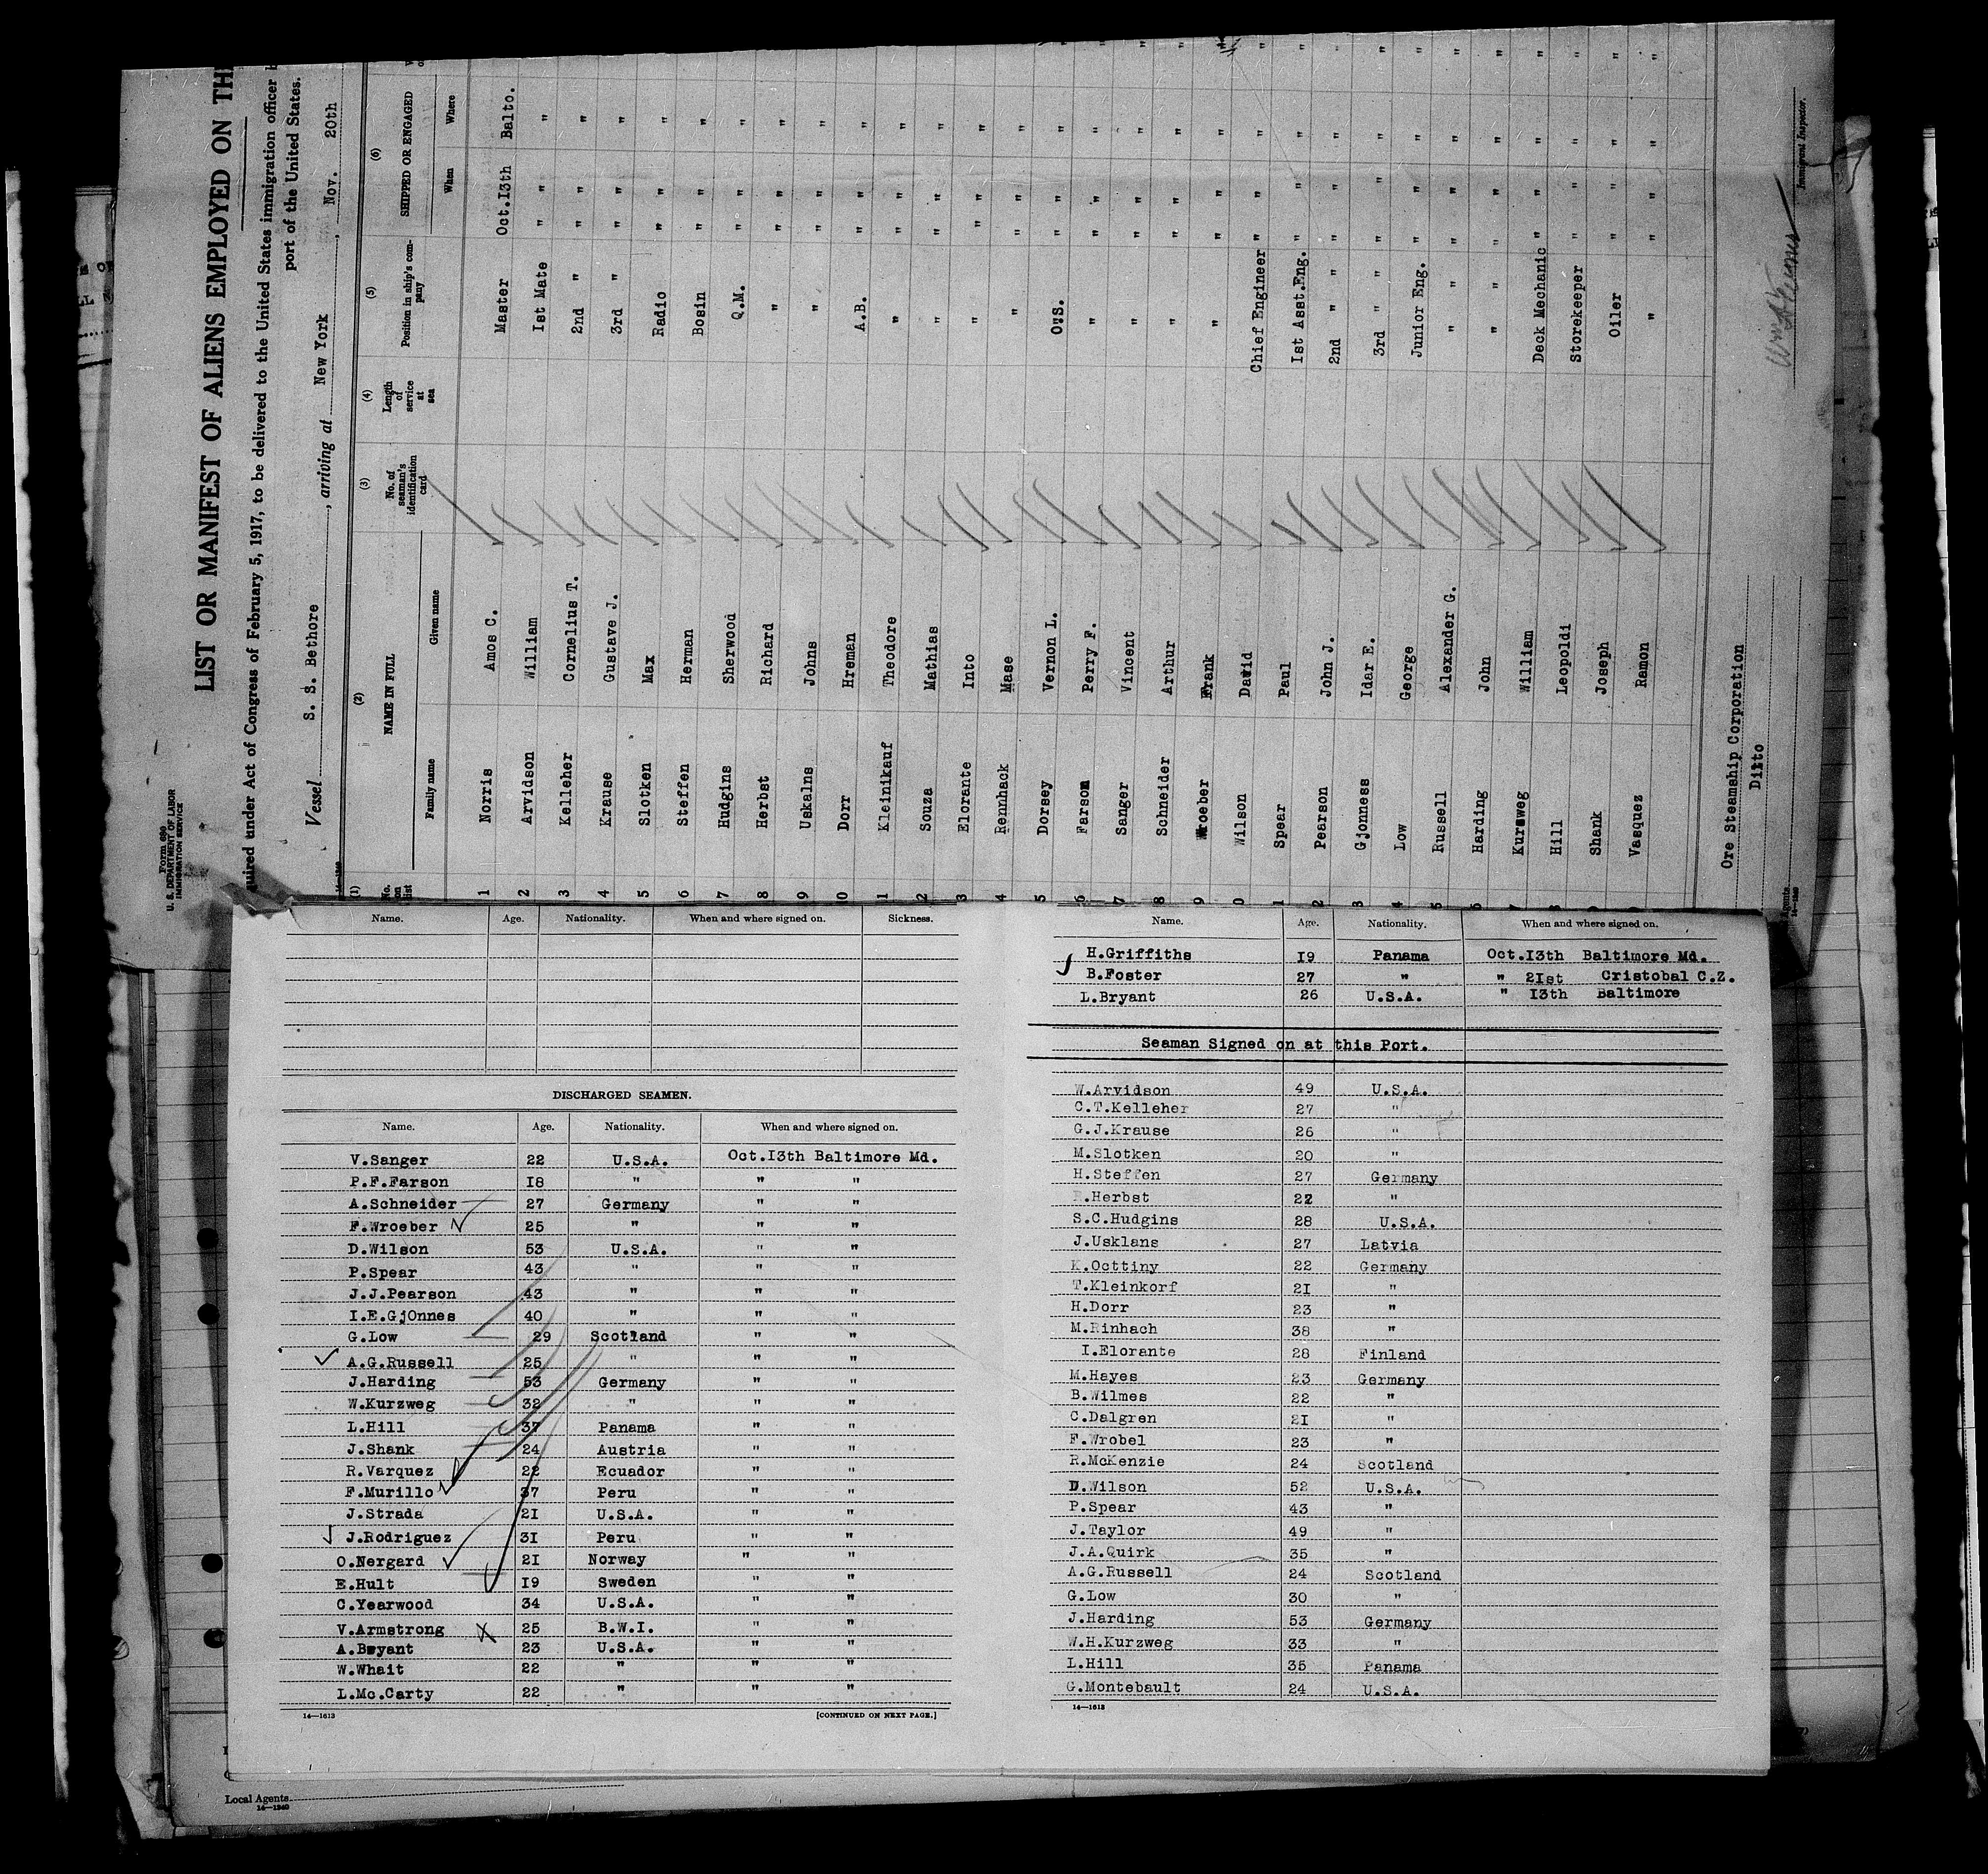 Form 680
U. S. DEPARTMENT OF LABOR
IMMIGRATION SERVICE
LIST OR MANIFEST OF ALIENS EMPLOYED ON TH
quired under Act of Congress of February 5, 1917, to be delivered to the United States immigration officer
port of the United States.
Vessel S. S. Bethore, arriving at New York, Nov. 20th
(1) (2) (3) (4) (5) (6)
No. on list NAME IN FULL No. of seaman's identification card Length of service at sea Position in ship's company SHIPPED OR ENGAGED
Family name Given name When Where
1 Norris Amos C. Master Oct.13th Balto.
2 Arvidson William 1st Mate " " "
3 Kelleher Cornelius T. 2nd " " " "
4 Krause Gustave J. 3rd " " " "
5 Slotken Max Radio " " "
6 Steffen Herman Bosin " " "
7 Hudgins Sherwood Q.M. " " "
8 Herbst Richard " " " "
9 Uskalns Johns " " " "
10 Dorr Hreman A.B. " " "
1 Kleinikauf Theodore " " " "
2 Souza Mathias " " " "
3 Elorante Into " " " "
4 Rennhack Mase " " " "
5 Dorsey Vernon L. O.S. " " "
6 Farson Perry F. " " " "
7 Sanger Vincent " " " "
8 Schneider Arthur " " " "
9 Wroeber Frank " " " "
0 Wilson David Chief Engineer " " "
1 Spear Paul 1st Asst.Eng. " " "
2 Pearson John J. 2nd " " " " "
3 Gjonness Idar E. 3rd " " " " "
4 Low George Junior Eng. " " "
5 Russell Alexander G. " " " "
6 Harding John " " " "
7 Kurzweg William Deck Mechanic " " "
8 Hill Leopoldi Storekeeper " " "
9 Shank Joseph Oiler " " "
Vasquez Ramon " " " "
Ore Steamship Corporation
Ditto
Agents
14—1240
Immigrant Inspector.
Name. Age. Nationality. When and where signed on. Sickness.
DISCHARGED SEAMEN.
Name. Age. Nationality. When and where signed on.
V.Sanger 22 U.S.A. Oct.13th Baltimore Md.
P.F.Farson 18 " " "
A.Schneider 27 Germany " "
F.Wroeber 25 " " "
D.Wilson 53 U.S.A. " "
P.Spear 43 " " "
J.J.Pearson 43 " " "
I.E.GjOnnes 40 " " "
G.Low 29 Scotland " "
A.G.Russell 25 " " "
J.Harding 53 Germany " "
W.Kurzweg 32 " " "
L.Hill 37 Panama " "
J.Shank 24 Austria " "
R.Varquez 22 Ecuador " "
F.Murillo 37 Peru " "
J.Strada 21 U.S.A. " "
J.Rodriguez 31 Peru " "
O.Nergard 21 Norway " "
E.Hult 19 Sweden " "
C.Yearwood 34 U.S.A. " "
V.Armstrong 25 B.W.I. " "
A.Bryant 23 U.S.A. " "
W.Whait 22 " " "
L.Mc.Carty 22 " " "
14—1613 [CONTINUED ON NEXT PAGE.]
Name. Age. Nationality. When and where signed on.
H.Griffiths 19 Panama Oct.13th Baltimore Md.
B.Foster 27 " " 21st Cristobal C.Z.
L.Bryant 26 U.S.A. " 13th Baltimore
Seaman Signed on at this Port.
W.Arvidson 49 U.S.A.
C.T.Kelleher 27 "
G.J.Krause 26 "
M.Slotken 20 "
H.Steffen 27 Germany
R.Herbst 22 "
S.C.Hudgins 28 U.S.A.
J.Usklans 27 Latvia
K.Octtiny 22 Germany
T.Kleinkorf 21 "
H.Dorr 23 "
M.Rinhach 38 "
I.Elorante 28 Finland
M.Hayes 23 Germany
B.Wilmes 22 "
C.Dalgren 21 "
F.Wrobel 23 "
R.McKenzie 24 Scotland
D.Wilson 52 U.S.A.
P.Spear 43 "
J.Taylor 49 "
J.A.Quirk 35 "
A.G.Russell 24 Scotland
G.Low 30 "
J.Harding 53 Germany
W.H.Kurzweg 33 "
L.Hill 35 Panama
G.Montebault 24 U.S.A.
14—1613
Local Agents
14—1240